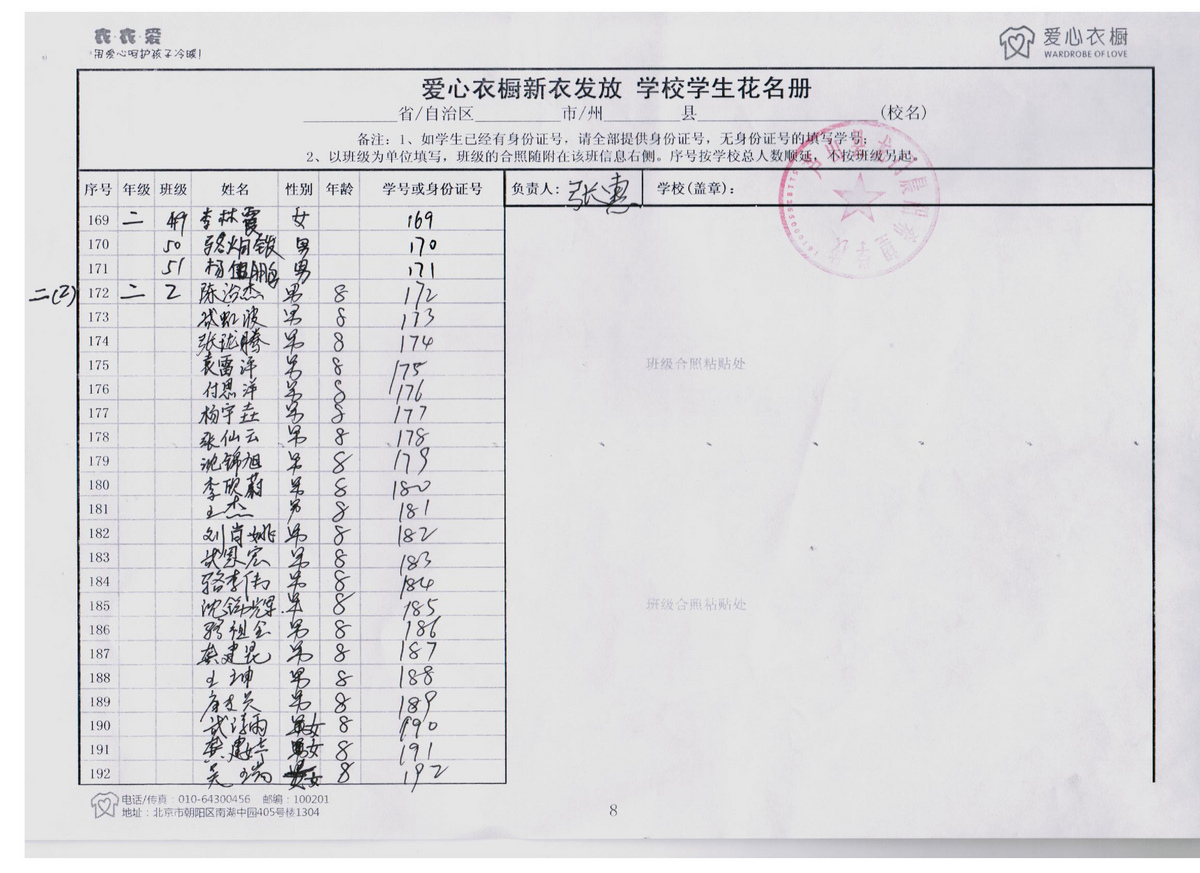 衣·衣·爱
用爱心呵护孩子冷暖!
爱心衣橱
WARDROBE OF LOVE
爱心衣橱新衣发放 学校学生花名册
省/自治区 市/州 县 (校名)
备注：1、如学生已经有身份证号，请全部提供身份证号，无身份证号的填写学号；
2、以班级为单位填写，班级的合照随附在该班信息右侧。序号按学校总人数顺延，不按班级另起。
序号 年级 班级 姓名 性别 年龄 学号或身份证号 负责人：张惠 学校(盖章)：
169 二 49 李林霞 女 169
170 50 男 170
171 51 杨 鹏 男 171
二(2) 172 二 2 陈治杰 男 8 172
173 武虹波 男 8 173
174 张珑腾 男 8 174
175 袁雷洋 男 8 175
176 付恩洋 男 8 176
177 杨宇垚 男 8 177
178 张仙云 男 8 178
179 沈锦旭 男 8 179
180 李欣蔚 男 8 180
181 王杰 男 8 181
182 刘肖姚 男 8 182
183 武恩宏 男 8 183
184 骆李伟 男 8 184
185 沈 辉 男 8 185
186 骆祖全 男 8 186
187 龚建昆 男 8 187
188 王坤 男 8 188
189 男 8 189
190 武 雨 女 8 190
191 龚建婷 女 8 191
192 吴 女 8 192
班级合照粘贴处
班级合照粘贴处
电话/传真：010-64300456 邮编：100201
地址：北京市朝阳区南湖中园405号楼1304
8